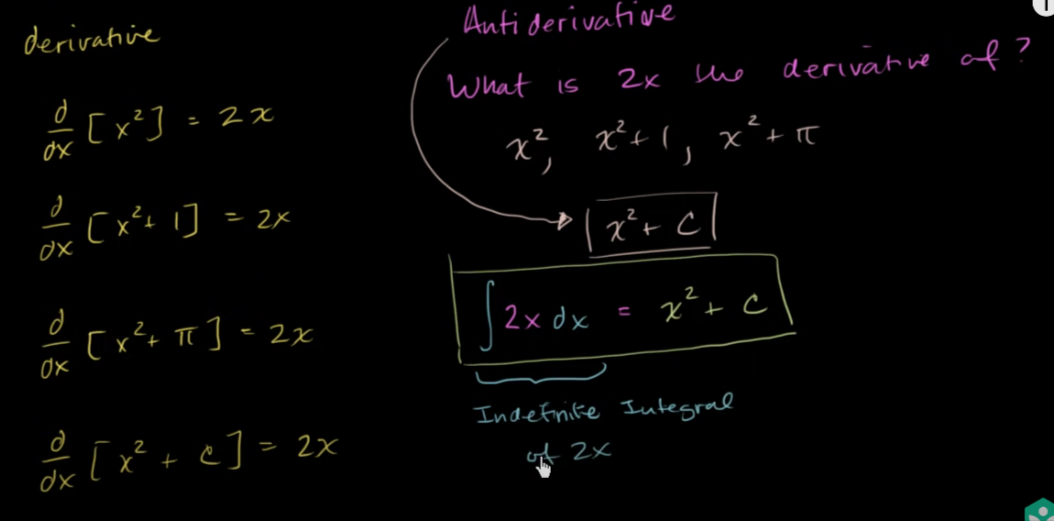 derivative
d/dx [x²] = 2x
d/dx [x²+ 1] = 2x
d/dx [x²+ π] = 2x
d/dx [x² + c] = 2x
Antiderivative
What is 2x the derivative of?
x², x²+1, x²+π
x²+ C
∫2x dx = x²+ C
Indefinite Integral
of 2x